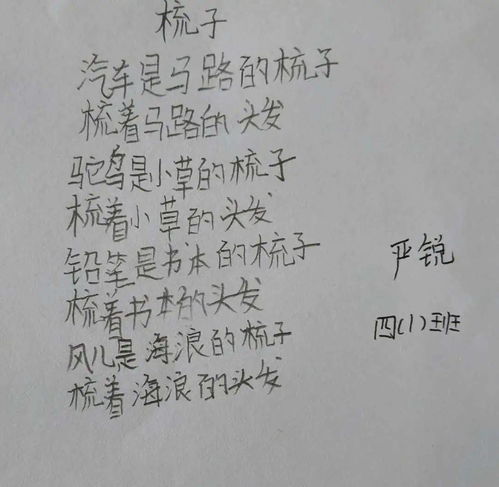 梳子
汽车是马路的梳子
梳着马路的头发
鸵鸟是小草的梳子
梳着小草的头发
铅笔是书本的梳子
梳着书本的头发
风儿是海浪的梳子
梳着海浪的头发
严锐
四(1)班